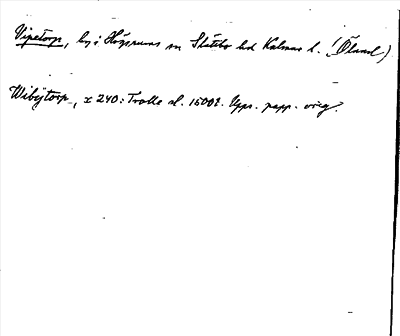 Vipetorp, by i Högsrums sn Slättbo hd Kalmar l. (Öland)
Wibijtorp, x 240: Trolle sl. 1500t. Uppr. papp. orig.